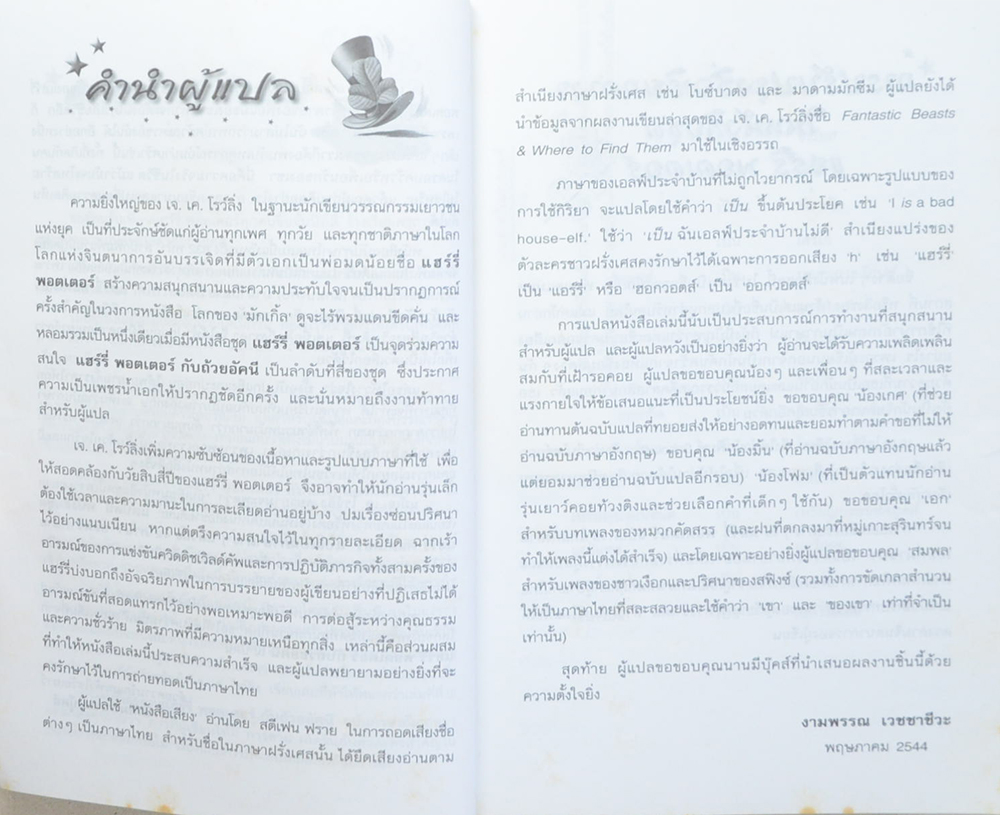 คำนำผู้แปล
ความยิ่งใหญ่ของ เจ. เค. โรว์ลิ่ง ในฐานะนักเขียนวรรณกรรมเยาวชน
แห่งยุค เป็นที่ประจักษ์ชัดแก่ผู้อ่านทุกเพศ ทุกวัย และทุกชาติภาษาในโลก
โลกแห่งจินตนาการอันบรรเจิดที่มีตัวเอกเป็นพ่อมดน้อยชื่อ แฮร์รี่
พอตเตอร์ สร้างความสนุกสนานและความประทับใจจนเป็นปรากฏการณ์
ครั้งสำคัญในวงการหนังสือ โลกของ 'มักเกิ้ล' ดูจะไร้พรมแดนขีดคั่น และ
หลอมรวมเป็นหนึ่งเดียวเมื่อมีหนังสือชุด แฮร์รี่ พอตเตอร์ เป็นจุดร่วมความ
สนใจ แฮร์รี่ พอตเตอร์ กับถ้วยอัคนี เป็นลำดับที่สี่ของชุด ซึ่งประกาศ
ความเป็นเพชรน้ำเอกให้ปรากฏชัดอีกครั้ง และนั่นหมายถึงงานท้าทาย
สำหรับผู้แปล
เจ. เค. โรว์ลิ่งเพิ่มความซับซ้อนของเนื้อหาและรูปแบบภาษาที่ใช้ เพื่อ
ให้สอดคล้องกับวัยสิบสี่ปีของแฮร์รี่ พอตเตอร์ จึงอาจทำให้นักอ่านรุ่นเล็ก
ต้องใช้เวลาและความมานะในการละเลียดอ่านอยู่บ้าง ปมเรื่องซ่อนปริศนา
ไว้อย่างแนบเนียน หากแต่ตรึงความสนใจไว้ในทุกรายละเอียด ฉากเร้า
อารมณ์ของการแข่งขันควิดดิชเวิลด์คัพและการปฏิบัติภารกิจทั้งสามครั้งของ
แฮร์รี่บ่งบอกถึงอัจฉริยภาพในการบรรยายของผู้เขียนอย่างที่ปฏิเสธไม่ได้
อารมณ์ขันที่สอดแทรกไว้อย่างพอเหมาะพอดี การต่อสู้ระหว่างคุณธรรม
และความชั่วร้าย มิตรภาพที่มีความหมายเหนือทุกสิ่ง เหล่านี้คือส่วนผสม
ที่ทำให้หนังสือเล่มนี้ประสบความสำเร็จ และผู้แปลพยายามอย่างยิ่งที่จะ
คงรักษาไว้ในการถ่ายทอดเป็นภาษาไทย
ผู้แปลใช้ 'หนังสือเสียง' อ่านโดย สตีเฟน ฟราย ในการถอดเสียงชื่อ
ต่างๆ เป็นภาษาไทย สำหรับชื่อในภาษาฝรั่งเศสนั้น ได้ยึดเสียงอ่านตาม
สำเนียงภาษาฝรั่งเศส เช่น โบซ์บาตง และ มาดามมักซีม ผู้แปลยังได้
นำข้อมูลจากผลงานเขียนล่าสุดของ เจ. เค. โรว์ลิ่งชื่อ Fantastic Beasts
& Where to Find Them มาใช้ในเชิงอรรถ
ภาษาของเอลฟ์ประจำบ้านที่ไม่ถูกไวยากรณ์ โดยเฉพาะรูปแบบของ
การใช้กิริยา จะแปลโดยใช้คำว่า เป็น ขึ้นต้นประโยค เช่น 'I is a bad
house-elf.' ใช้ว่า 'เป็น ฉันเอลฟ์ประจำบ้านไม่ดี' สำเนียงแปร่งของ
ตัวละครชาวฝรั่งเศสคงรักษาไว้ได้เฉพาะการออกเสียง 'h' เช่น 'แฮร์รี่'
เป็น 'แอร์รี่' หรือ 'ฮอกวอตส์' เป็น 'ออกวอตส์'
การแปลหนังสือเล่มนี้นับเป็นประสบการณ์การทำงานที่สนุกสนาน
สำหรับผู้แปล และผู้แปลหวังเป็นอย่างยิ่งว่า ผู้อ่านจะได้รับความเพลิดเพลิน
สมกับที่เฝ้ารอคอย ผู้แปลขอขอบคุณน้องๆ และเพื่อนๆ ที่สละเวลาและ
แรงกายใจให้ข้อเสนอแนะที่เป็นประโยชน์ยิ่ง ขอขอบคุณ 'น้องเกศ' (ที่ช่วย
อ่านทานต้นฉบับแปลที่ทยอยส่งให้อย่างอดทนและยอมทำตามคำขอที่ไม่ให้
อ่านฉบับภาษาอังกฤษ) ขอบคุณ 'น้องมิ้น' (ที่อ่านฉบับภาษาอังกฤษแล้ว
แต่ยอมมาช่วยอ่านฉบับแปลอีกรอบ) 'น้องโฟม' (ที่เป็นตัวแทนนักอ่าน
รุ่นเยาว์คอยท้วงติงและช่วยเลือกคำที่เด็กๆ ใช้กัน) ขอขอบคุณ 'เอก'
สำหรับบทเพลงของหมวกคัดสรร (และฝนที่ตกลงมาที่หมู่เกาะสุรินทร์จน
ทำให้เพลงนี้แต่งได้สำเร็จ) และโดยเฉพาะอย่างยิ่งผู้แปลขอขอบคุณ 'สมพล'
สำหรับเพลงของชาวเงือกและปริศนาของสฟิงซ์ (รวมทั้งการขัดเกลาสำนวน
ให้เป็นภาษาไทยที่สละสลวยและใช้คำว่า 'เขา' และ 'ของเขา' เท่าที่จำเป็น
เท่านั้น)
สุดท้าย ผู้แปลขอขอบคุณนานมีบุ๊คส์ที่นำเสนอผลงานชิ้นนี้ด้วย
ความตั้งใจยิ่ง
งามพรรณ เวชชาชีวะ
พฤษภาคม 2544